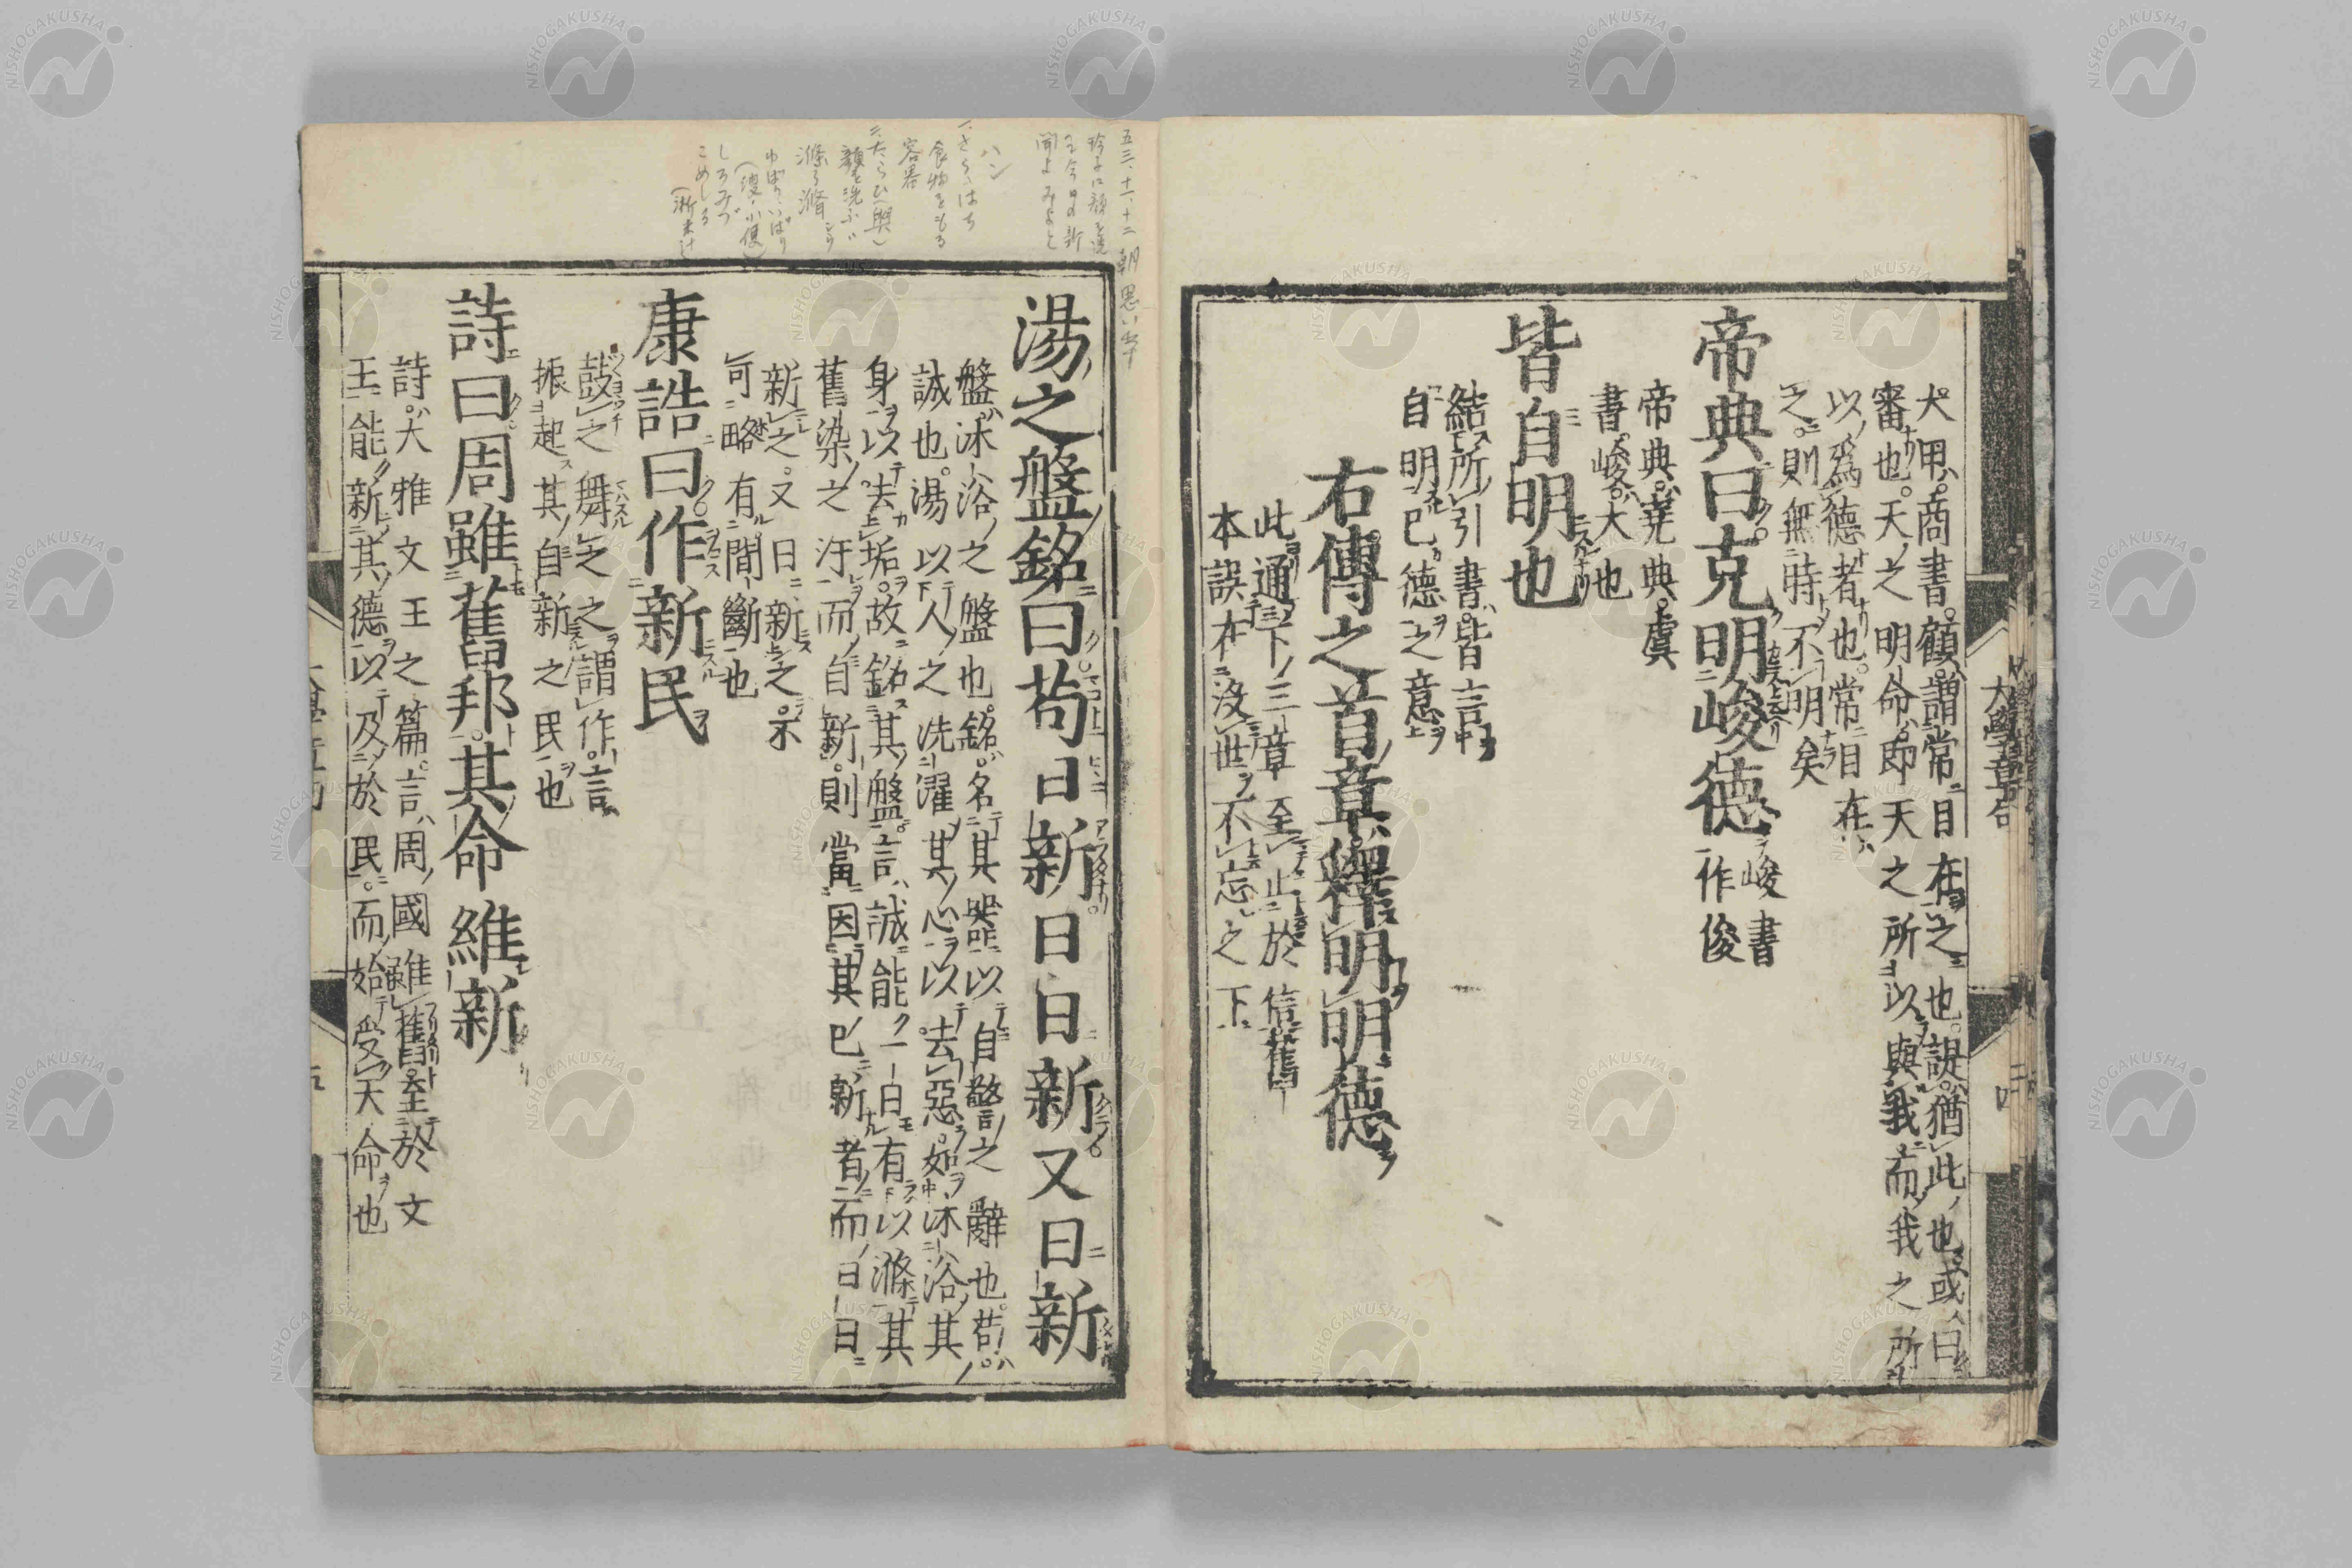 大學章句
大甲。商書。顧。謂常目在之也。諟。猶此也。或曰
審也。天之明命。即天之所以與我。而我之所
以為德者也。常目在
之。則無時不明矣
帝典曰。克明峻德
峻書
作俊
帝典。堯典。虞
書。峻。大也
皆自明也
結所引書。皆言
自明己德之意
右傳之首章。釋明明德
此通下三章至止於信。舊
本誤在沒世不忘之下
湯之盤銘曰。苟日新。日日新。又日新
盤。沐浴之盤也。銘。名其器以自警之辭也。苟。
誠也。湯以人之洗濯其心以去惡。如沐浴其
身以去垢。故銘其盤。言誠能一日有以滌其
舊染之汙而自新。則當因其已新者。而日日
新之。又日新之。不
可略有間斷也
康誥曰。作新民
鼓之舞之之謂作。言
振起其自新之民也
詩曰。周雖舊邦。其命維新
詩。大雅文王之篇。言周國雖舊。至於文
王。能新其德以及於民。而始受天命也
五三、十一、十二 朝
ハン
食物をもる
容器
しろみづ
こめしる
NISHOGAKUSHA